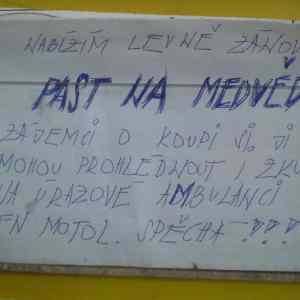 NABÍZÍM LEVNĚ ZÁNOV
PAST NA MEDVĚD
ZÁJEMCI O KOUPI SI JI
MOHOU PROHLÉDNOUT I ZKU
NA ÚRAZOVÉ AMBULANCI
FN MOTOL. SPĚCHÁ???